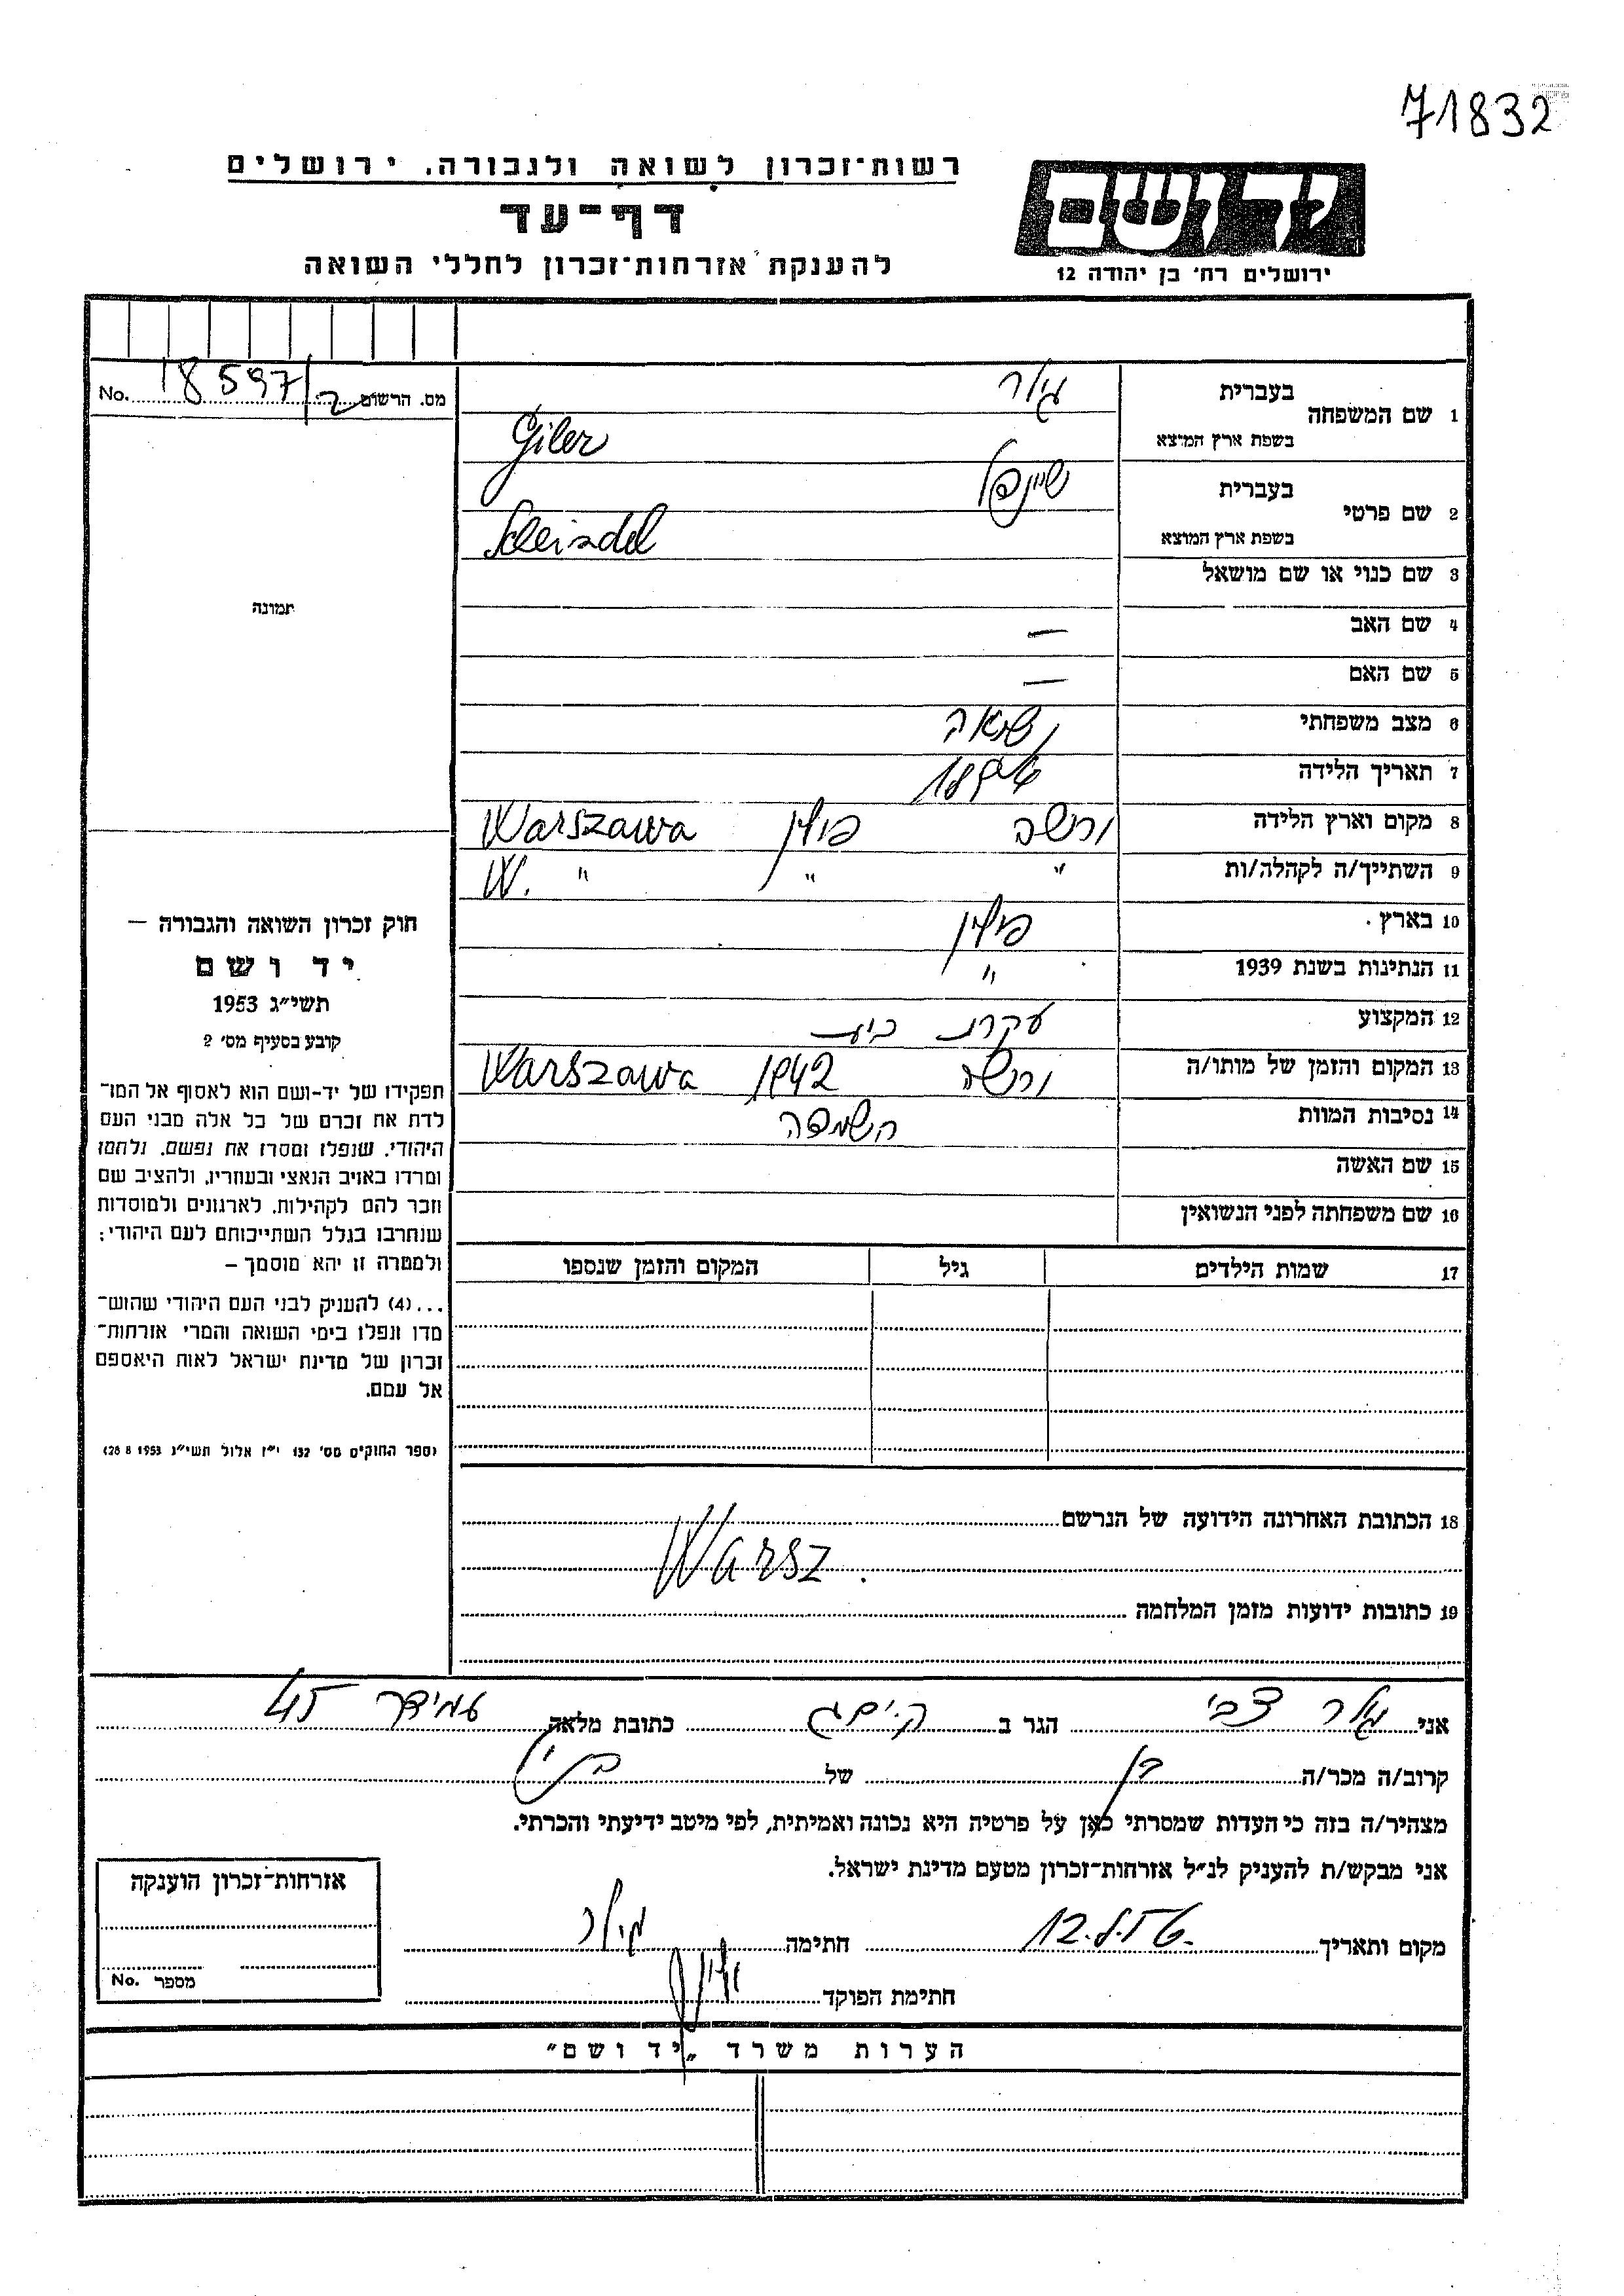 71832
רשות־זכרון לשואה ולגבורה, ירושלים
דף־עד
להענקת אזרחות־זכרון לחללי השואה
יד ושם
ירושלים רח׳ בן יהודה 12
מס. הרשום 18597/2 No.
1 שם המשפחה
בעברית גילר
בשפת ארץ המוצא Giler
2 שם פרטי
בעברית שיינדל
בשפת ארץ המוצא Scheindel
3 שם כנוי או שם מושאל
4 שם האב —
5 שם האם —
6 מצב משפחתי נשואה
7 תאריך הלידה
8 מקום וארץ הלידה ורשה פולין Warszawa
9 השתייך/ה לקהלה/ות " " " W.
10 בארץ פולין
11 הנתינות בשנת 1939 "
12 המקצוע עקרת בית
13 המקום והזמן של מותו/ה ורשה 1942 Warszawa
14 נסיבות המוות השמדה
15 שם האשה
16 שם משפחתה לפני הנשואין
17 שמות הילדים גיל המקום והזמן שנספו
תמונה
חוק זכרון השואה והגבורה —
יד ושם
תשי״ג 1953
קובע בסעיף מס׳ 2
תפקידו של יד-ושם הוא לאסוף אל המו־
לדת את זכרם של כל אלה מבני העם
היהודי, שנפלו ומסרו את נפשם, נלחמו
ומרדו באויב הנאצי ובעוזריו, ולהציב שם
וזכר להם לקהילות, לארגונים ולמוסדות
שנחרבו בגלל השתייכותם לעם היהודי;
ולמטרה זו יהא מוסמך —
...(4) להעניק לבני העם היהודי שהוש־
מדו ונפלו בימי השואה והמרי אזרחות־
זכרון של מדינת ישראל לאות היאספם
אל עמם.
(ספר החוקים מס׳ 132 י״ז אלול תשי״ג 28 8 1953)
18 הכתובת האחרונה הידועה של הנרשם
Warsz.
19 כתובות ידועות מזמן המלחמה
אני גילר צבי הגר ב כתובת מלאה עמידר 45
קרוב/ה מכר/ה בן של
מצהיר/ה בזה כי העדות שמסרתי כאן על פרטיה היא נכונה ואמיתית, לפי מיטב ידיעתי והכרתי.
אני מבקש/ת להעניק לנ״ל אזרחות־זכרון מטעם מדינת ישראל.
מקום ותאריך חתימה גילר
חתימת הפוקד
אזרחות־זכרון הוענקה
מספר No.
הערות משרד „יד ושם״